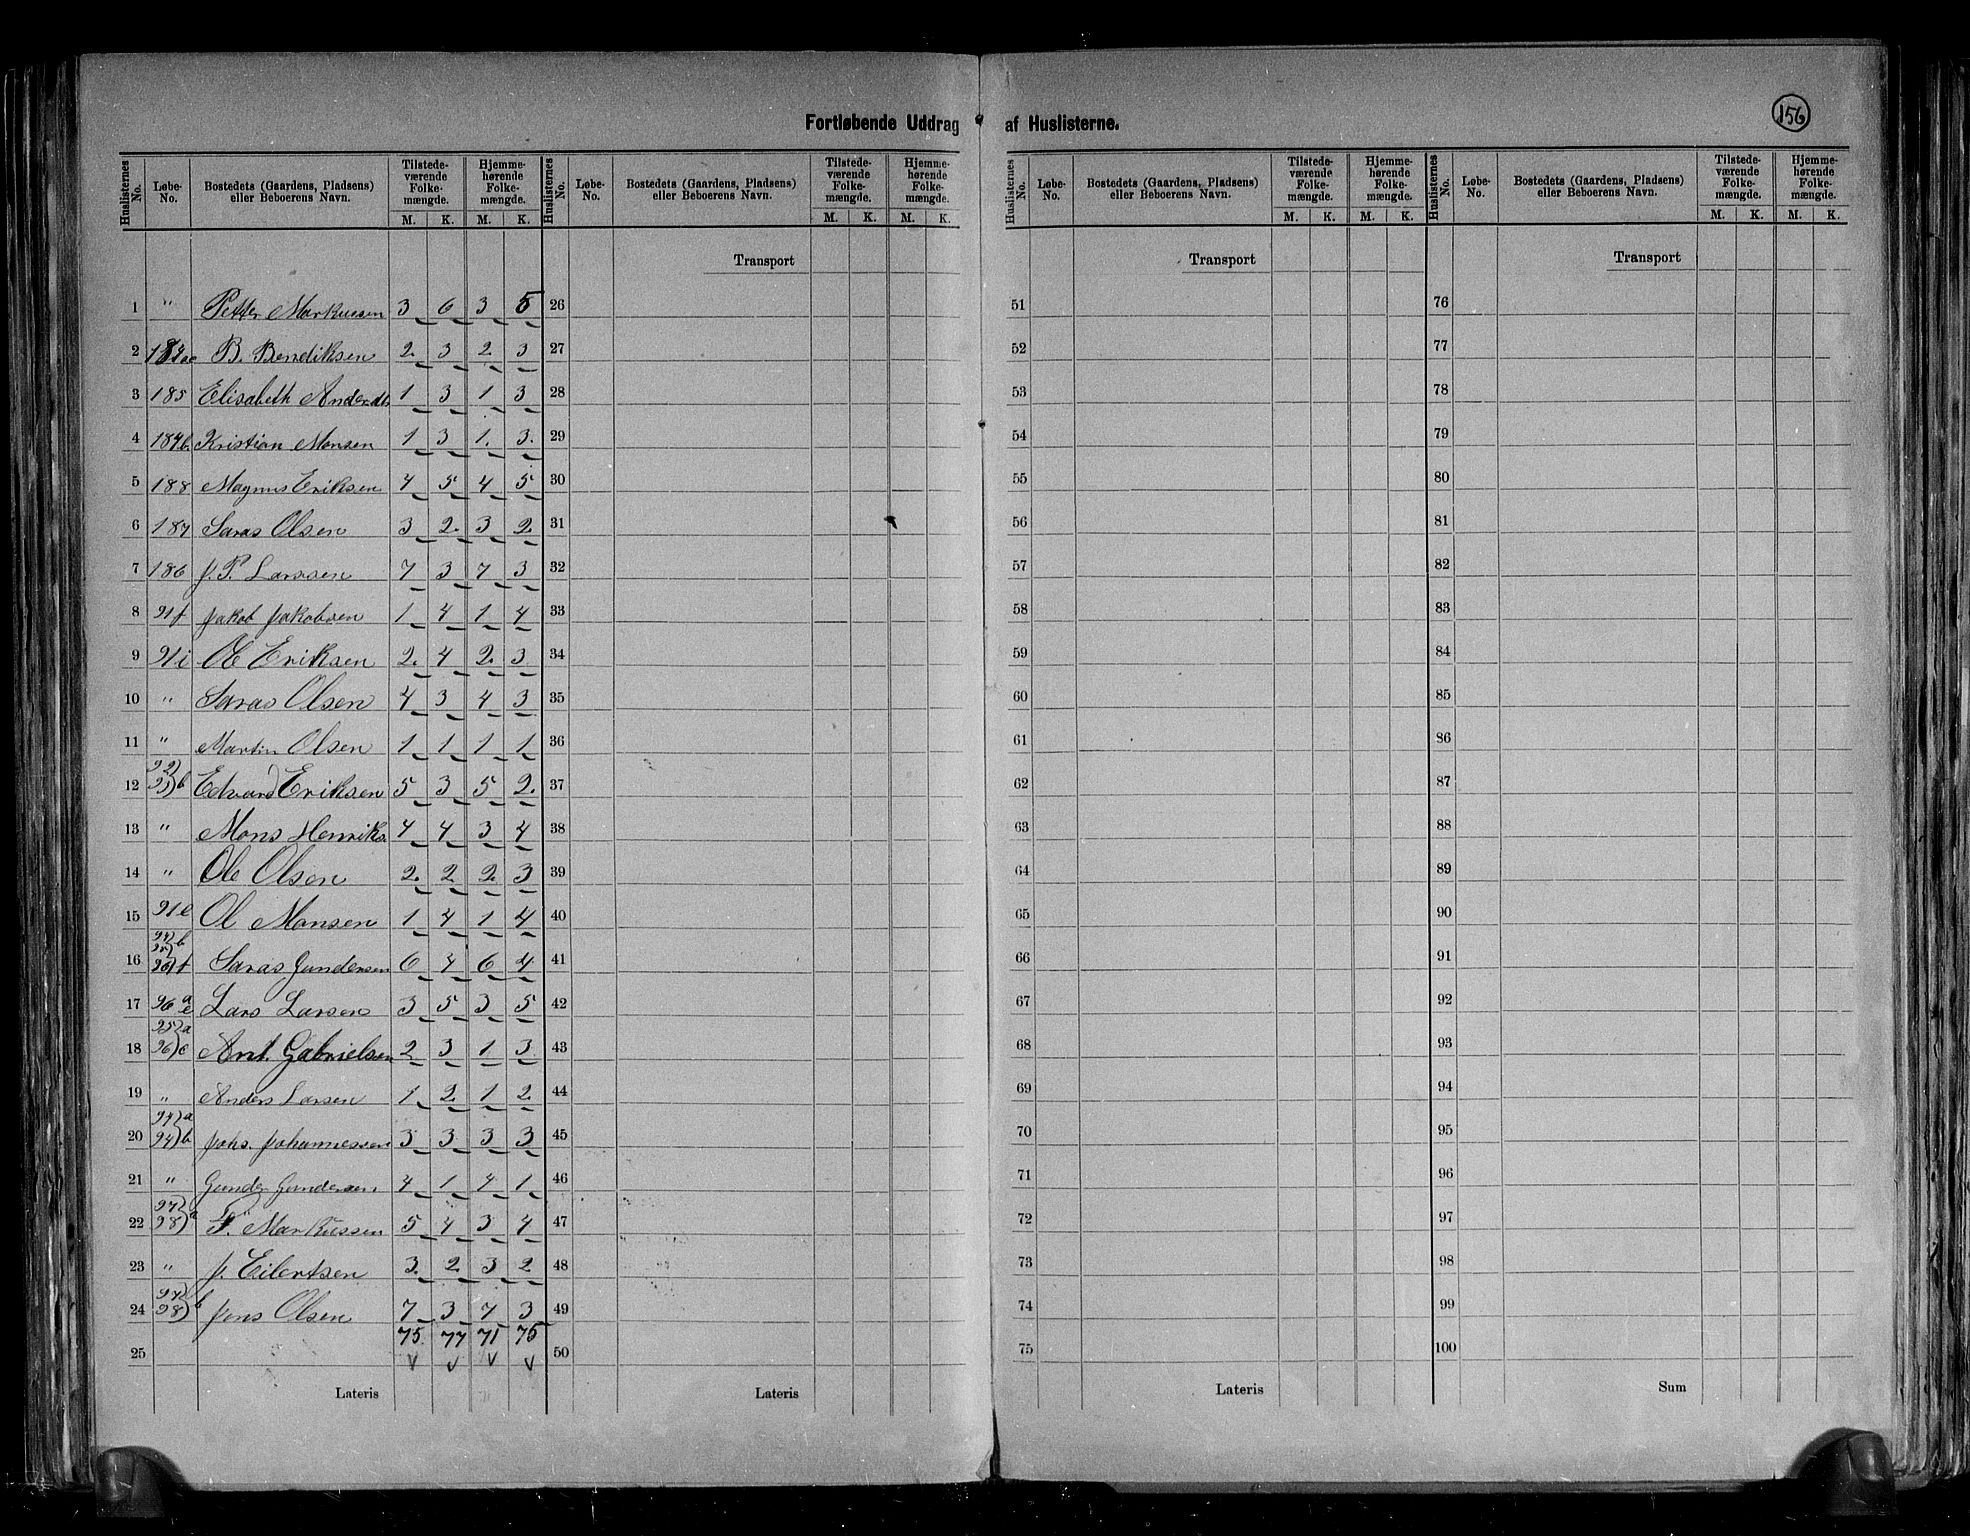 Fortløbende Uddrag af Huslisterne.
156
Huslisternes No. Løbe-No. Bostedets (Gaardens, Pladsens) eller Beboerens Navn. Tilstedeværende Folkemængde. M. K. Hjemmehørende Folkemængde. M. K.
Huslisternes No. Løbe-No. Bostedets (Gaardens, Pladsens) eller Beboerens Navn. Tilstedeværende Folkemængde. M. K. Hjemmehørende Folkemængde. M. K.
Løbe-No. Bostedets (Gaardens, Pladsens) eller Beboerens Navn. Tilstedeværende Folkemængde. M. K. Hjemmehørende Folkemængde. M. K.
Huslisternes No. Løbe-No. Bostedets (Gaardens, Pladsens) eller Beboerens Navn. Tilstedeværende Folkemængde. M. K. Hjemmehørende Folkemængde. M. K.
Transport Transport Transport
1 " Petter Markussen 3 6 3 5 26 51 76
2 B. Bendiksen 2 3 2 3 27 52 77
3 185 Elisabeth 1 3 1 3 28 53 78
4 184b. Kristian Monsen 1 3 1. 3. 29 54 79
5 188 Magnus Eriksen 4 5 4 5 30 55 80
6 187 Saras Olsen 3 2. 3 2. 31 56 81
7 186 J. P. Larssen 7 3 7 3 32 57 82
8 91f Jakob Jakobsen 1 4 1 4 33 58 83
9 91i Ole Eriksen 2. 4 2. 3 34 59 84
10 " Saras Olsen 4 3 4 3 35 60 85
11 " Martin Olsen 1 1 1 1 36 61 86
12 Edvard Eriksen 5 3 5 2. 37 62 87
13 " Mons Henriks. 4 4 3 4 38 63 88
14 " Ole Olsen 2. 2. 2. 3 39 64 89
15 91e Ol Monsen 1 4 1 4 40 65 90
16 Saras Gundersen 6 4 6 4 41 66 91
17 96 a e Lars Larsen 3 5 3 5 42 67 92
18 Ant. Gabrielsen 2 3 1 3 43 68 93
19 " Anders Larsen 1 2. 1 2. 44 69 94
20 Johs. Johannessen 3 3 3 3 45 70 95
21 " Gunder Gundersen 4 1 4 1 46 71 96
22 Markussen 5 4 3 4 47 72 97
23 " J. Eilertsen 3. 2. 3 2 48 73 98
24 Jens Olsen 7 3 7 3 49 74 99
75. 77 71 75
25 50 75 100
Lateris Lateris Lateris Sum